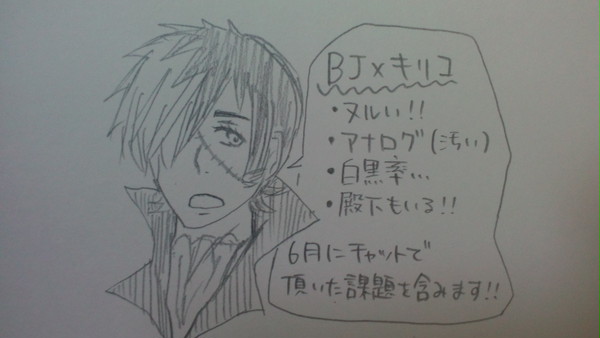 BJ×キリコ
・ヌルい!!
・アナログ(汚い)
・白黒率…
・殿下もいる!!
6月にチャットで
頂いた課題を含みます!!